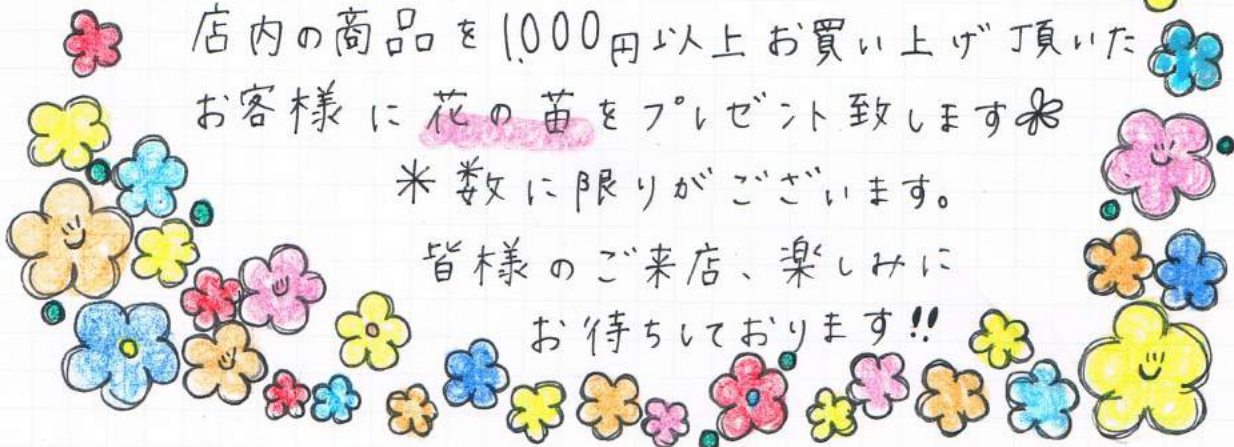 店内の商品を1,000円以上お買い上げ頂いた
お客様に花の苗をプレゼント致します
＊数に限りがございます。
皆様のご来店、楽しみに
お待ちしております!!